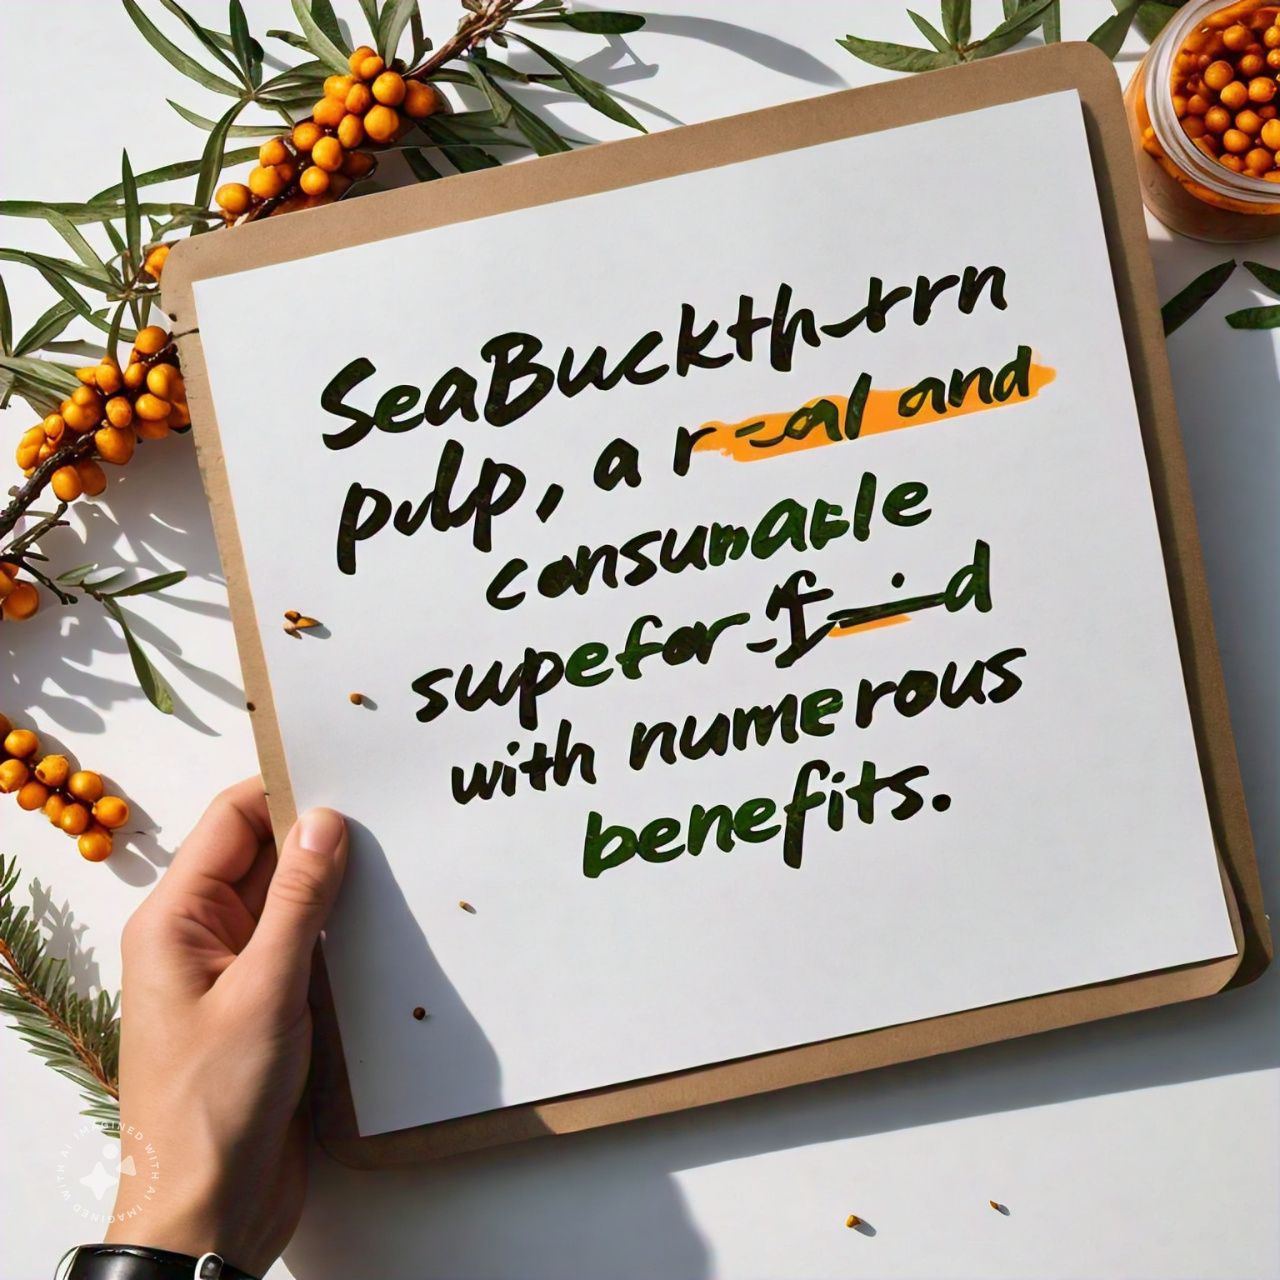 SeaBuckth-trn
pulp, a real and
consumable
supefor-f--d
with numerous
benefits.
IMAGINED WITH AI
IMAGINED WITH AI